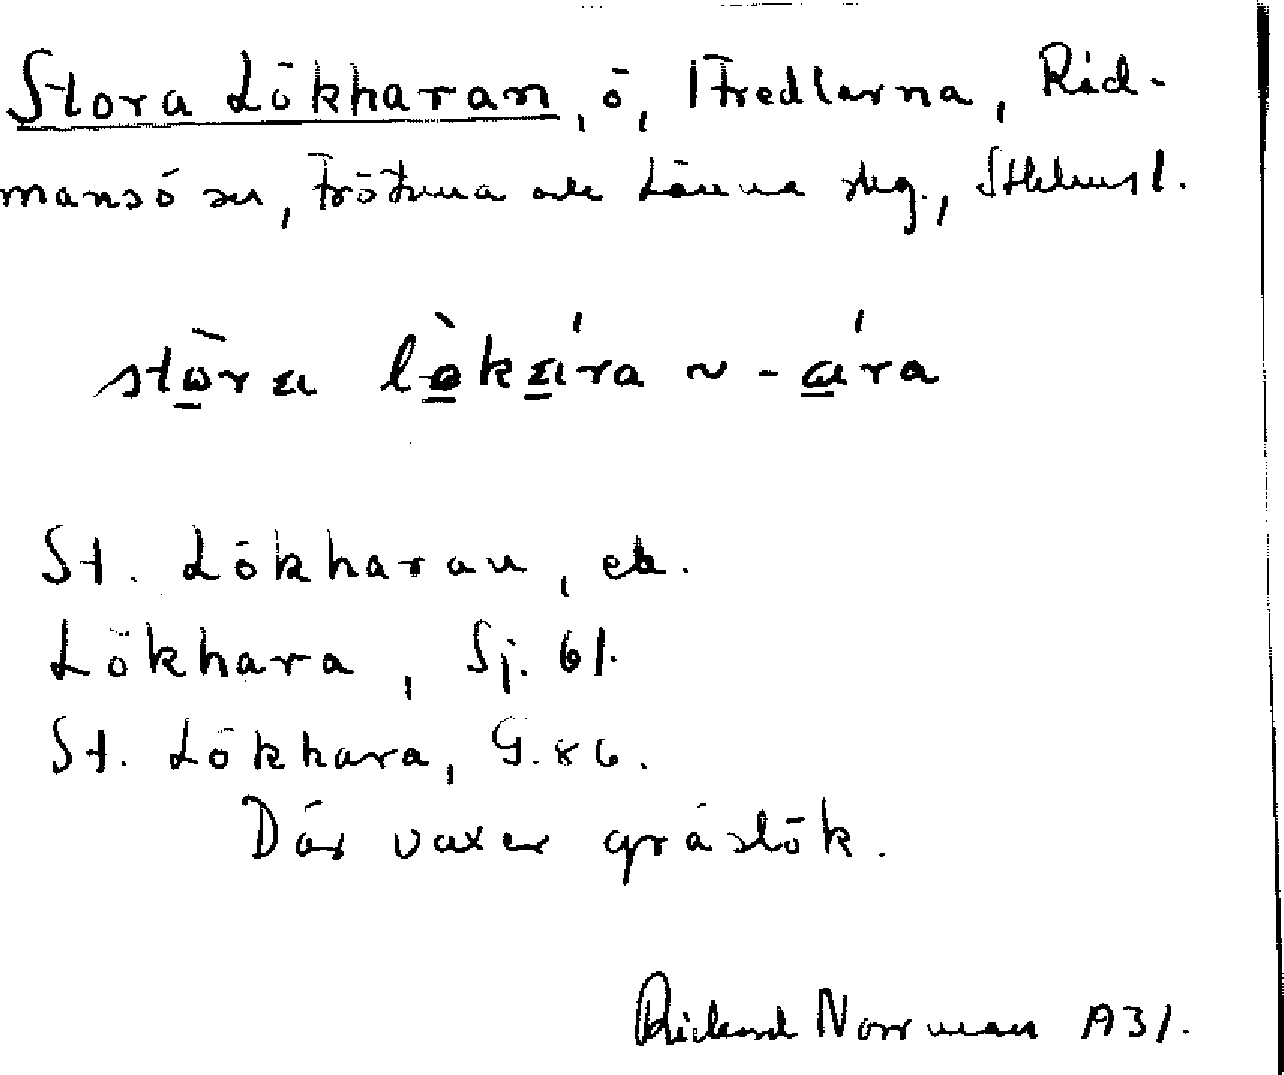 Stora Lökharan, ö, Fredlarna, Råd-
mansö sn, Frötuna och Länna skg., Sthlms l.
stòra lökára ~ -ára
St. Lökharan, ek.
Lökhara, Sj. 61.
St. Lökhara, G.k 6.
Där växer gräslök.
Rickard Norrman A31.